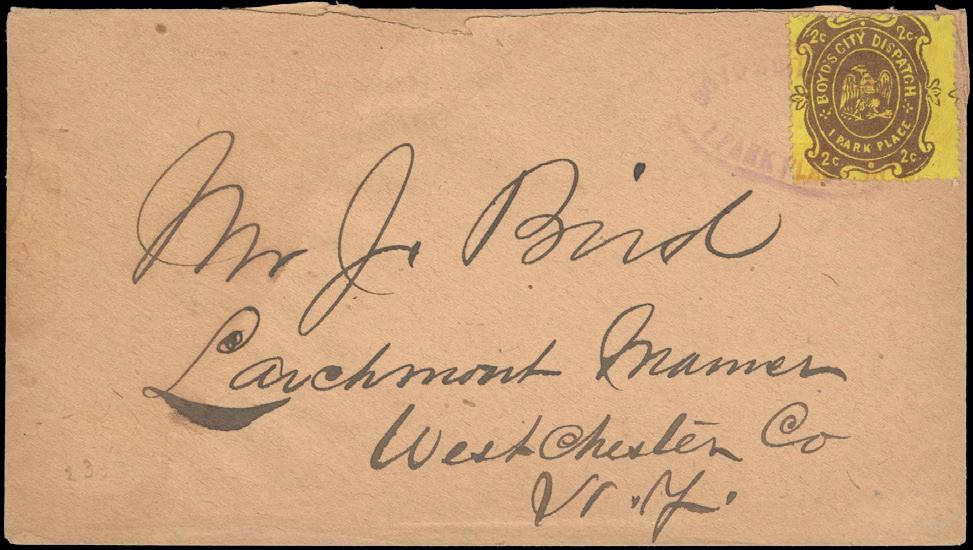 2c. 2c.
BOYD'S CITY DISPATCH
1 PARK PLACE
2c. 2c.
1 PARK PLACE
Mr J. Bird
Larchmont Manner
Westchester Co
N.Y.
23